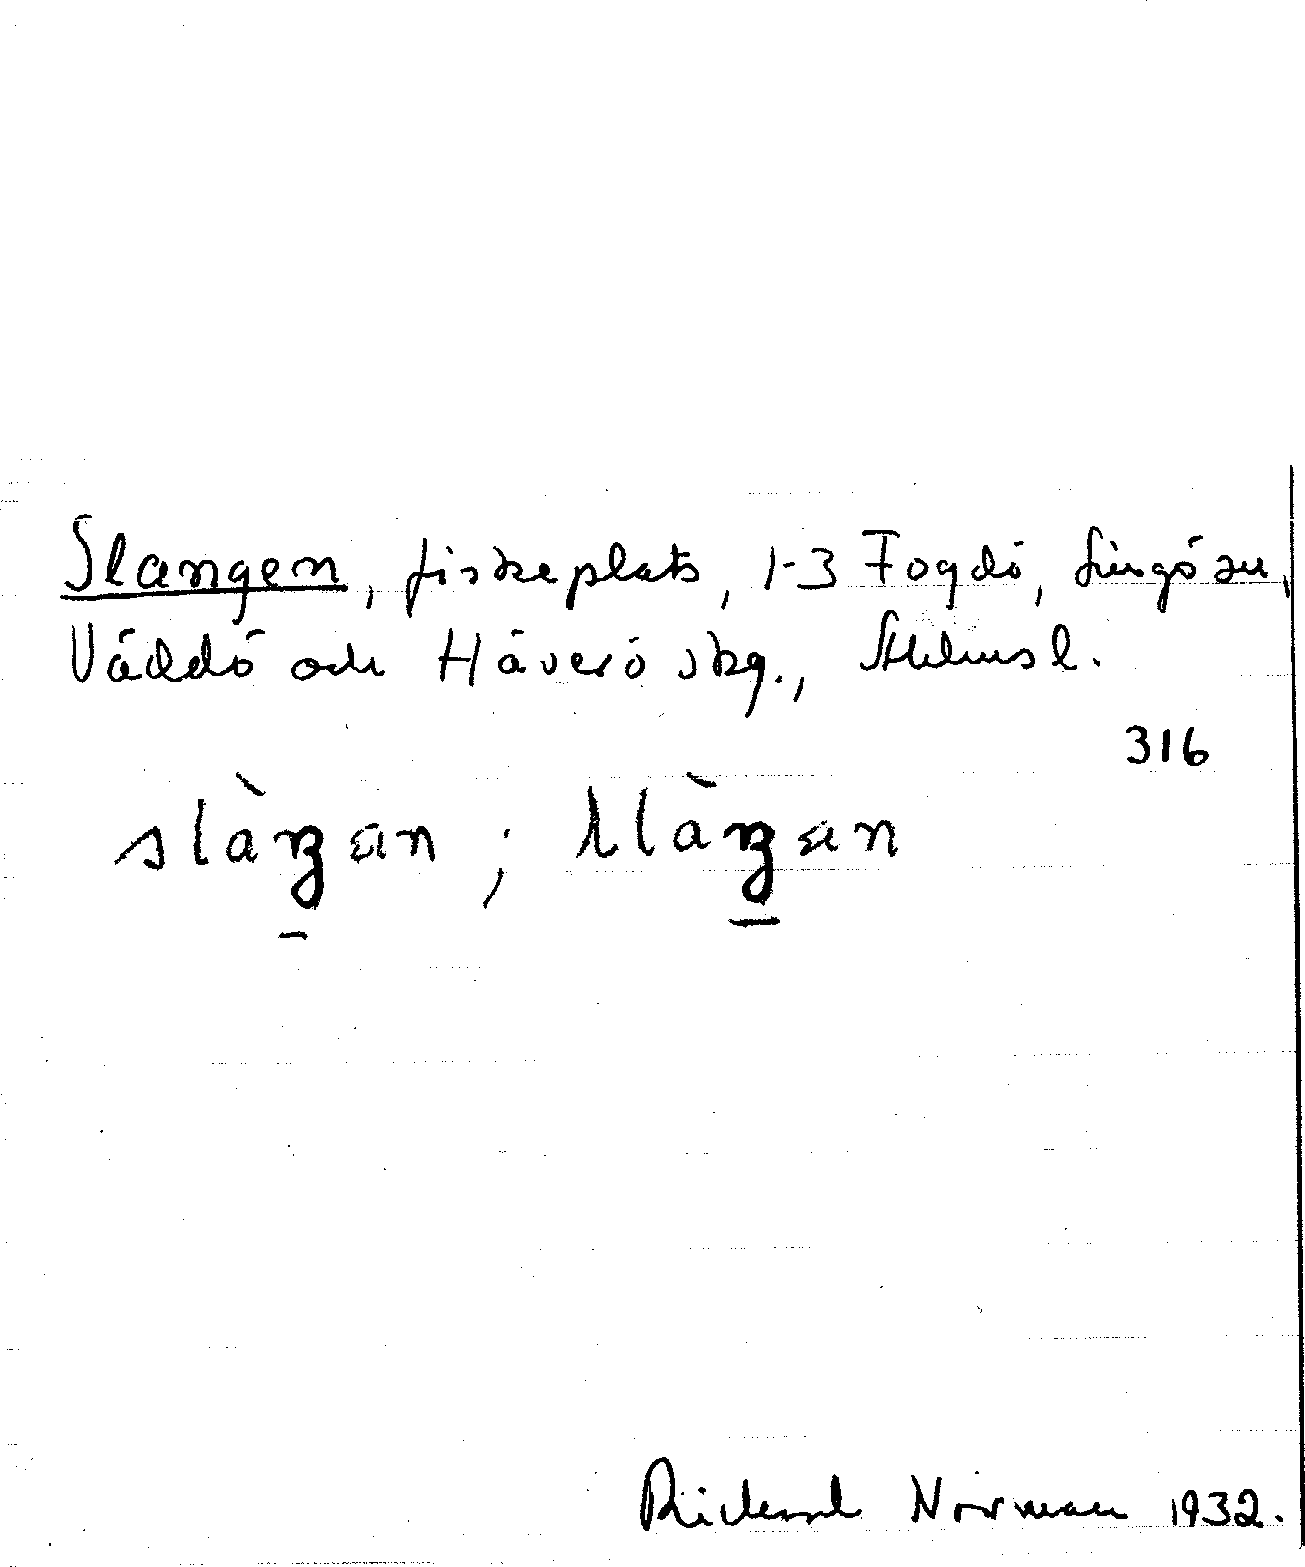 Slangen, fiskeplats, 1-3 Fogdö, Singö sn,
Väddö och Häverö skg., Sthlms l.
316
Rickard Norman 1932.